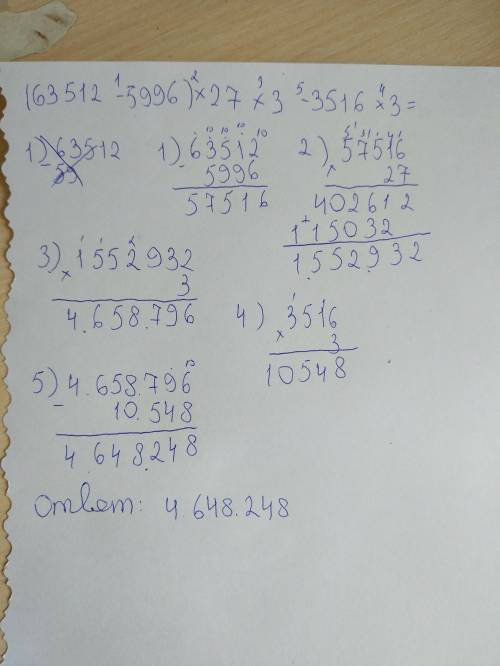 (63512 - 5996) × 27 × 3 - 3516 × 3 =
1 2 3 5 4
1) 63512
- 59
1) 63512
- 5996
57516
2) 57516
× 27
402612
+ 115032
1.552.932
3) 1552932
× 3
4.658.796
4) 3516
× 3
10548
5) 4.658.796
- 10.548
4.648.248
Ответ: 4.648.248